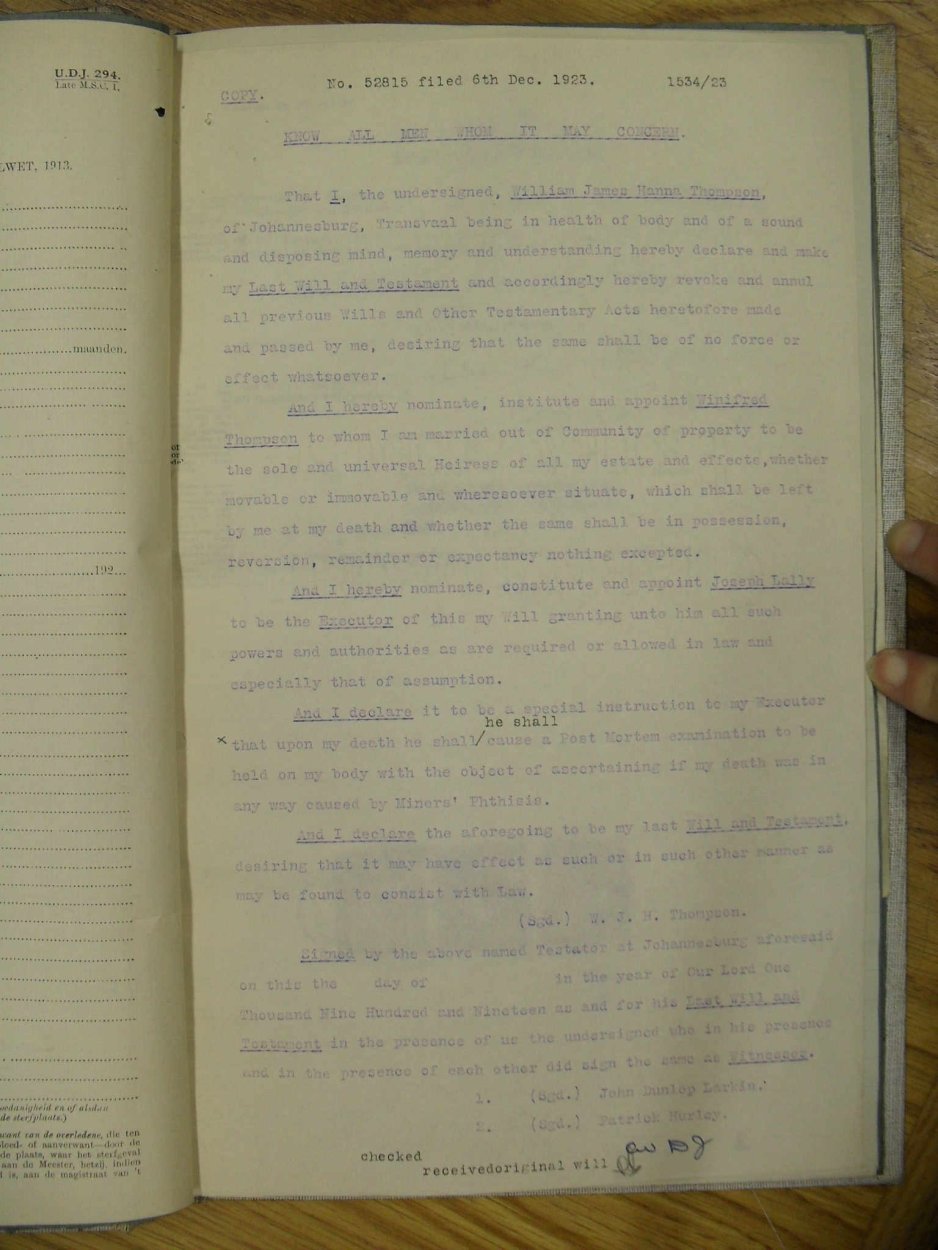 U.D.J. 294.
Late M.S.C. 1.
LWET, 1913.
maanden.
192
de sterfplaats.)
want van de overledene, die ten
bloed- of aanverwant door de
de plaats, waar het sterfgeval
aan de Meester, hetzij, indien
is, aan de magistraat van 't
No. 52815 filed 6th Dec. 1923. 1534/23
COPY.
KNOW ALL MEN WHOM IT MAY CONCERN.
That I, the undersigned, William James Hanna Thompson,
of Johannesburg, Transvaal being in health of body and of a sound
and disposing mind, memory and understanding hereby declare and make
my Last Will and Testament and accordingly hereby revoke and annul
all previous Wills and Other Testamentary Acts heretofore made
and passed by me, desiring that the same shall be of no force or
effect whatsoever.
And I hereby nominate, institute and appoint Winifred
Thompson to whom I am married out of Community of property to be
the sole and universal Heiress of all my estate and effects,whether
movable or immovable and wheresoever situate, which shall be left
by me at my death and whether the same shall be in possession,
reversion, remainder or expectancy nothing excepted.
And I hereby nominate, constitute and appoint Joseph Lally
to be the Executor of this my Will granting unto him all such
powers and authorities as are required or allowed in law and
especially that of assumption.
And I declare it to be a special instruction to my Executor
he shall
x that upon my death he shall/cause a Post Mortem examination to be
held on my body with the object of ascertaining if my death was in
any way caused by Miners' Phthisis.
And I declare the aforegoing to be my last Will and Testament,
desiring that it may have effect as such or in such other manner as
may be found to consist with Law.
(Sgd.) W. J. H. Thompson.
Signed by the above named Testator at Johannesburg aforesaid
on this the day of in the year of Our Lord One
Thousand Nine Hundred and Nineteen as and for his Last Will and
Testament in the presence of us the undersigned who in his presence
and in the presence of each other did sign the same as Witnesses.
1. (Sgd.) John Dunlop Larkin.
2. (Sgd.) Patrick Hurley.
checked
receivedoriginal will